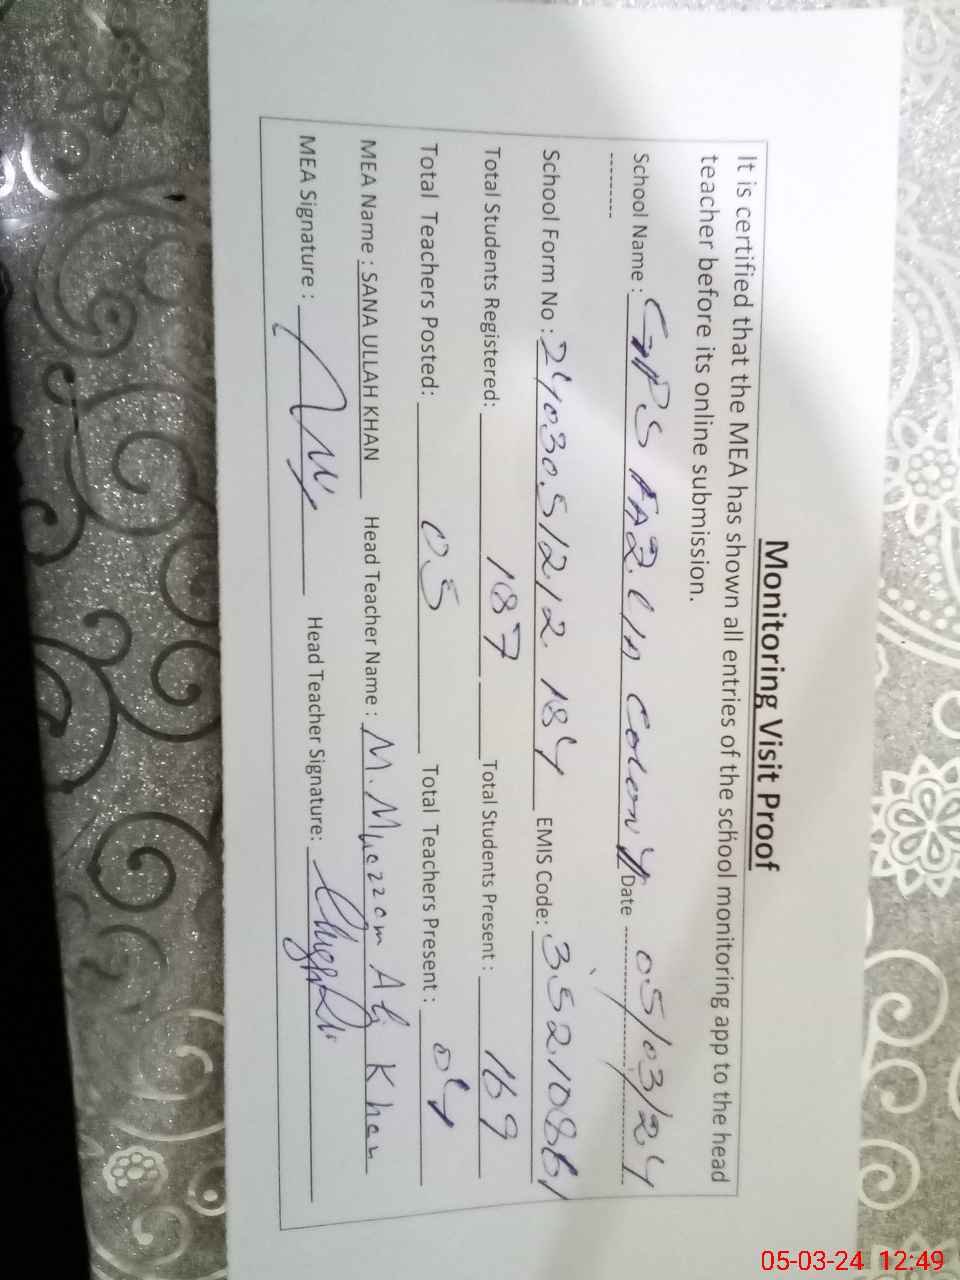 Monitoring Visit Proof
It is certified that the MEA has shown all entries of the school monitoring app to the head
teacher before its online submission.
School Name : GPS FAZLIA COLONY Date 05/03/24
School Form No : 240305121218 4 EMIS Code: 35210861
Total Students Registered: 187 Total Students Present : 169
Total Teachers Posted: 05 Total Teachers Present : 04
MEA Name : SANA ULLAH KHAN Head Teacher Name : M. Muazzam Ali Khan
MEA Signature : Head Teacher Signature:
05-03-24 12:49